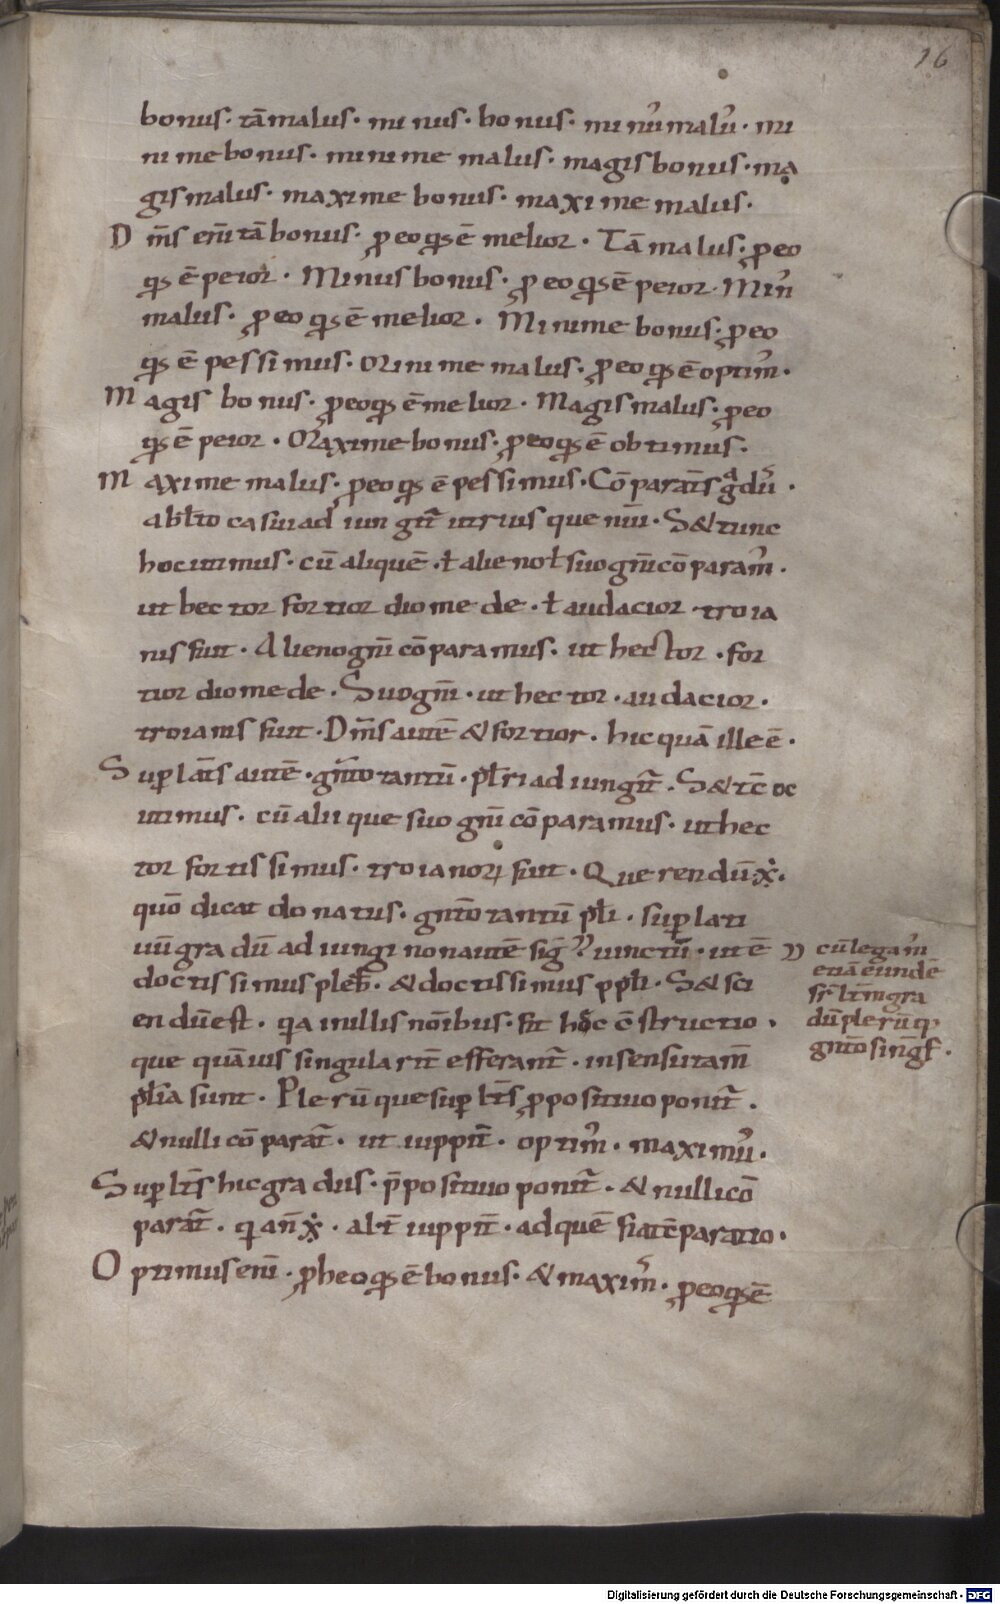 16
bonus· tā malus· minus· bonus· min᷒ malū· mi
nime bonus· minime malus· magis bonus· ma
gis malus· maxime bonus· maxime malus·
D m̄s eni tā bonus· ꝓ eo qs ē melior· Tā malus· ꝓ eo
qs ē peior· Minus bonus· ꝓ eo qs ē peior· Min᷒
malus· ꝓ eo qs ē melior· Minime bonus· ꝓ eo
qs ē pessimus· Minime malus· ꝓ eo qs ē optim᷒·
Magis bonus· ꝓ eo qs ē melior· Magis malus· ꝓ eo
qs ē peior· Maxime bonus· ꝓ eo qs ē obtimus·
Maxime malus· ꝓ eo qs ē pessimus· Cōparat̄s gͣdū·
abl̄to casui ad iungit̄ utrius que nūi· S& tunc
hoc utimus· cū aliquē· ł alieno ł suo gn̄i cōparam᷒·
ut hector fortior diomede· ł audacior troia
nis fuit· Alieno gn̄i cōparamus· ut hector· for
tior diomede· Suo gn̄i· ut hector· audacior·
troianis fuit· Dm̄s autē & fortior· hic quā ille ē·
Suꝑlat̄s autē· gn̄to tantū· pl̄ri ad iungit̄· S& tc̄ oc
utimus· cū alii que suo gn̄i cōparamus· ut hec
tor fortissimus· troianoꝝ fuit· Querendū·
quō dicat donatus· gn̄to tantū pl̄i· suꝑlati
uū gradū ad iungi non autē sig iunctū· ut ē
doctissimus pleb̄· & doctissimus ppl̄i· S& sci
endū est· qa in illis nōibus· fit hoc c̄structio·
que quāuis singularit̄ efferant̄· in sensu tam̄
pl̄ia sunt· Plerūque suꝑ lt̄s ꝓpositiuo ponit̄·
& nulli cōparat̄· ut iuppit̄· optim᷒· maximū᷒·
Suꝑlt̄s hic gradus· p̄positiuo ponit̄· & nulli cō
parat̄· alt̄ iuppit̄· ad quē fiat c̄paratio·
Optimus eni· ꝓ heo qs ē bonus· & maxim᷒· ꝓ eo qs ē
cū legam᷒
etiā eundē
gra
dū plerūq
gn̄to sinḡ·
Digitalisierung gefördert durch die Deutsche Forschungsgemeinschaft - DFG